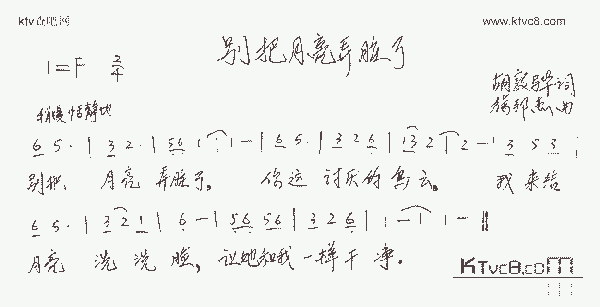 ktv吉吧网
www.ktvc8.com
别把月亮弄脏了
1=F 2/4
胡敦骅词
杨邦杰曲
稍慢 恬静地
6 5 · | 3 2 · | 56 1 · | 1 - | 6 5 · | 3 2 6 | 13 2 | 2 - | 3 5 3 |
别把 月亮 弄脏了, 你这 讨厌的 乌云。 我来给
6 5 · | 3 2 1 | 6 - | 56 56 | 3 2 6 | 1 - | 1 - ||
月亮 洗洗脸, 让她和我一样干净.
KTvc8.com